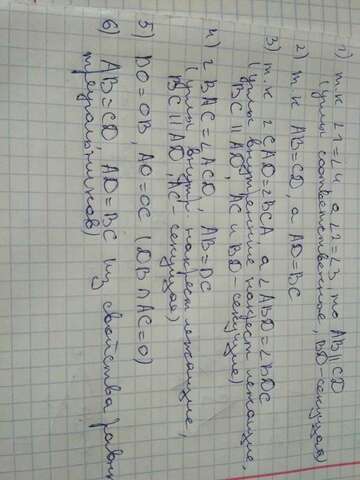 1) т.к ∠1=∠4, а ∠2=∠3, то AB||CD
(углы соответственные, BD-секущая)
2) т к AB=CD, а AD=BC
3) т.к ∠CAD=∠BCA, а ∠ABD=∠BDC
(углы внутренние накрест лежащие,
BC || AD, AC и BD-секущие)
4) ∠BAC=∠ACD, AB=DC
(углы внутр. накрест лежащие,
BC || AD, AC-секущая)
5) DO=OB, AO=OC (DB∩AC=O)
6) AB=CD, AD=BC (из свойства равных
треугольников)